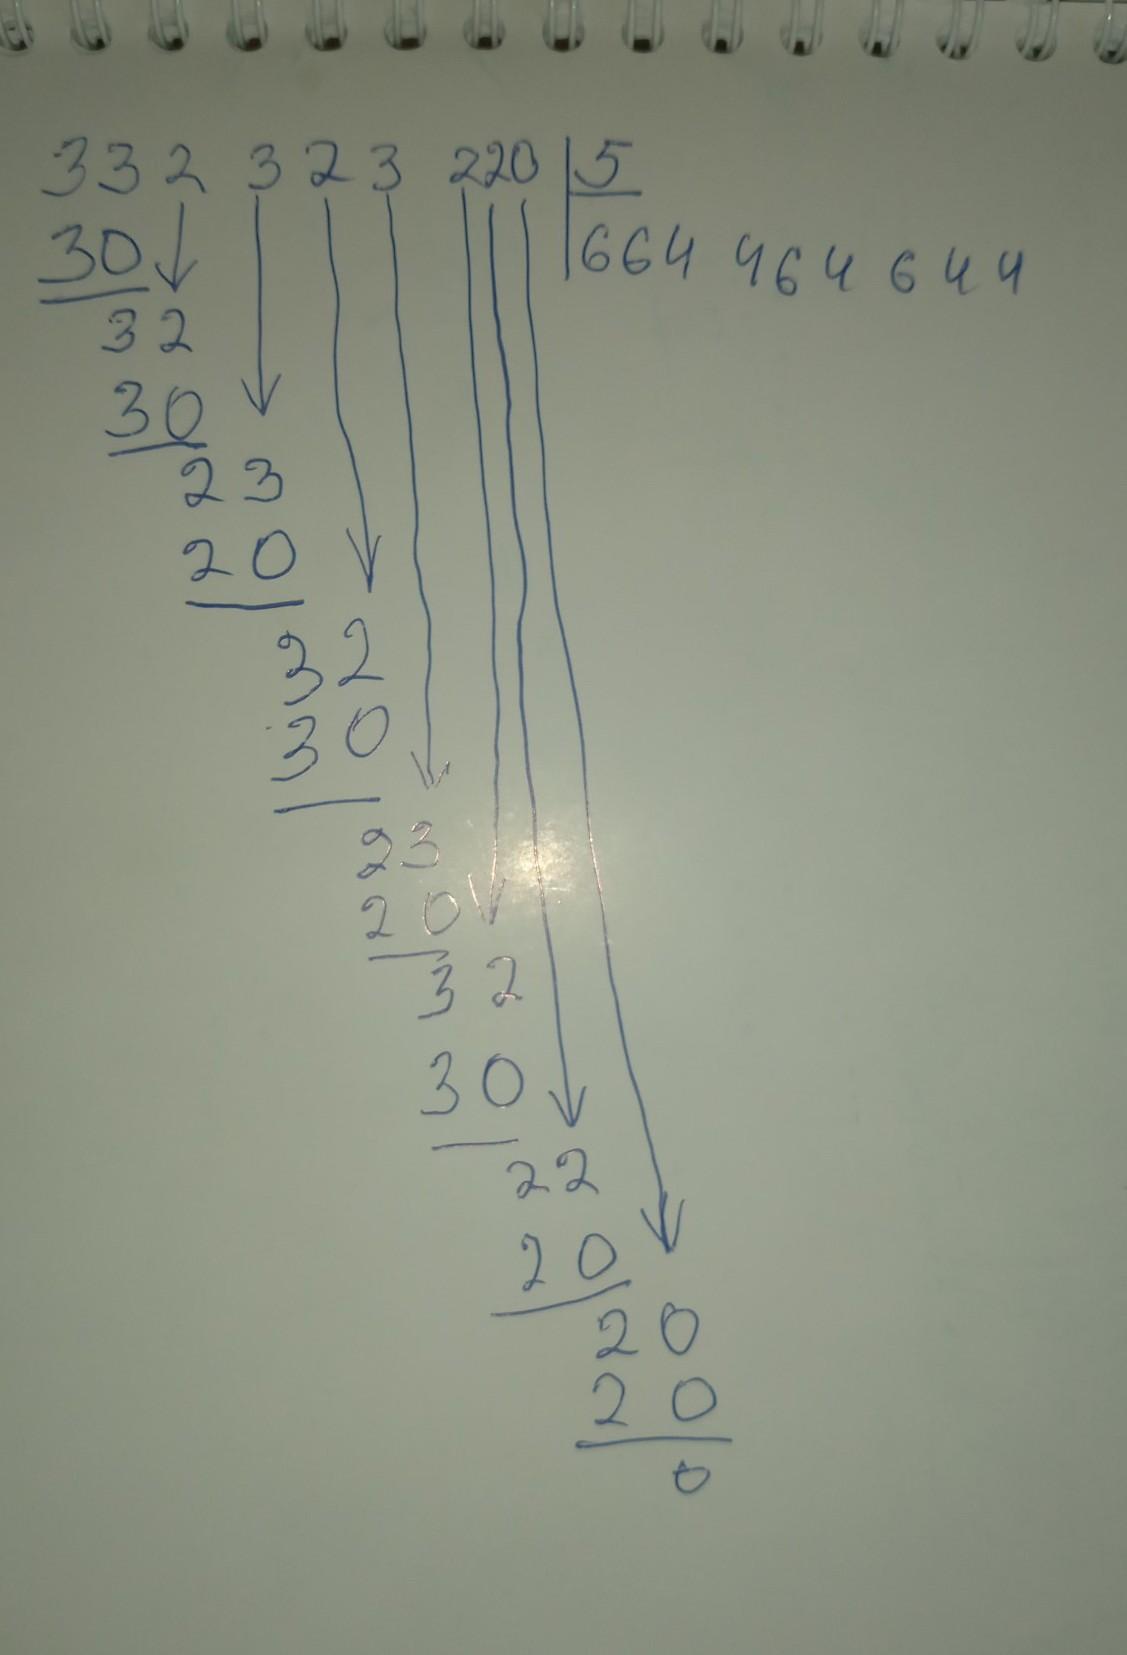 332 323 220 5
30 664 464 644
32
30
23
20
32
30
23
20
32
30
22
20
20
20
0